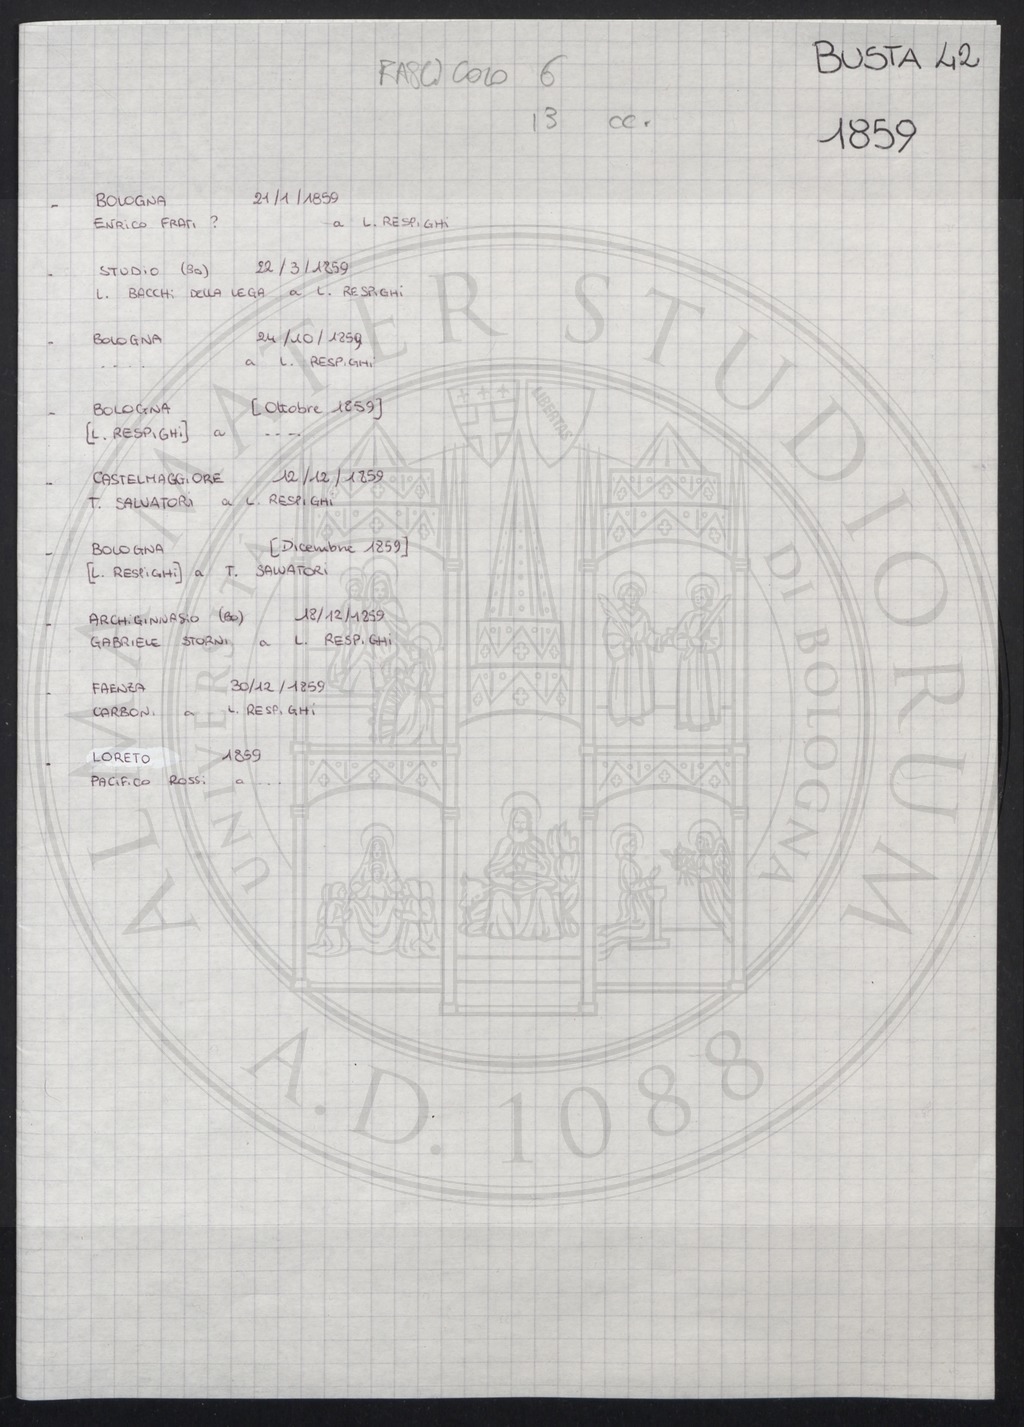 BUSTA 42
FASCICOLO 6
13 cc.
1859
- BOLOGNA 21/1/1859
ENRICO FRATI ? a L. RESPIGHI
- STUDIO (BO) 22/3/1859
L. BACCHI DELLA LEGA a L. RESPIGHI
- BOLOGNA 24/10/1859
.... a L. RESPIGHI
- BOLOGNA [Ottobre 1859]
[L. RESPIGHI] a ....
- CASTELMAGGIORE 12/12/1859
T. SALVATORI a L. RESPIGHI
- BOLOGNA [Dicembre 1859]
[L. RESPIGHI] a T. SALVATORI
- ARCHIGINNASIO (BO) 18/12/1859
GABRIELE STORNI a L. RESPIGHI
- FAENZA 30/12/1859
CARBONI a L. RESPIGHI
- LORETO 1859
PACIFICO ROSSI a ...
ALMA MATER STUDIORUM
A.D. 1088
UNIVERSITÀ DI BOLOGNA
LIBERTAS